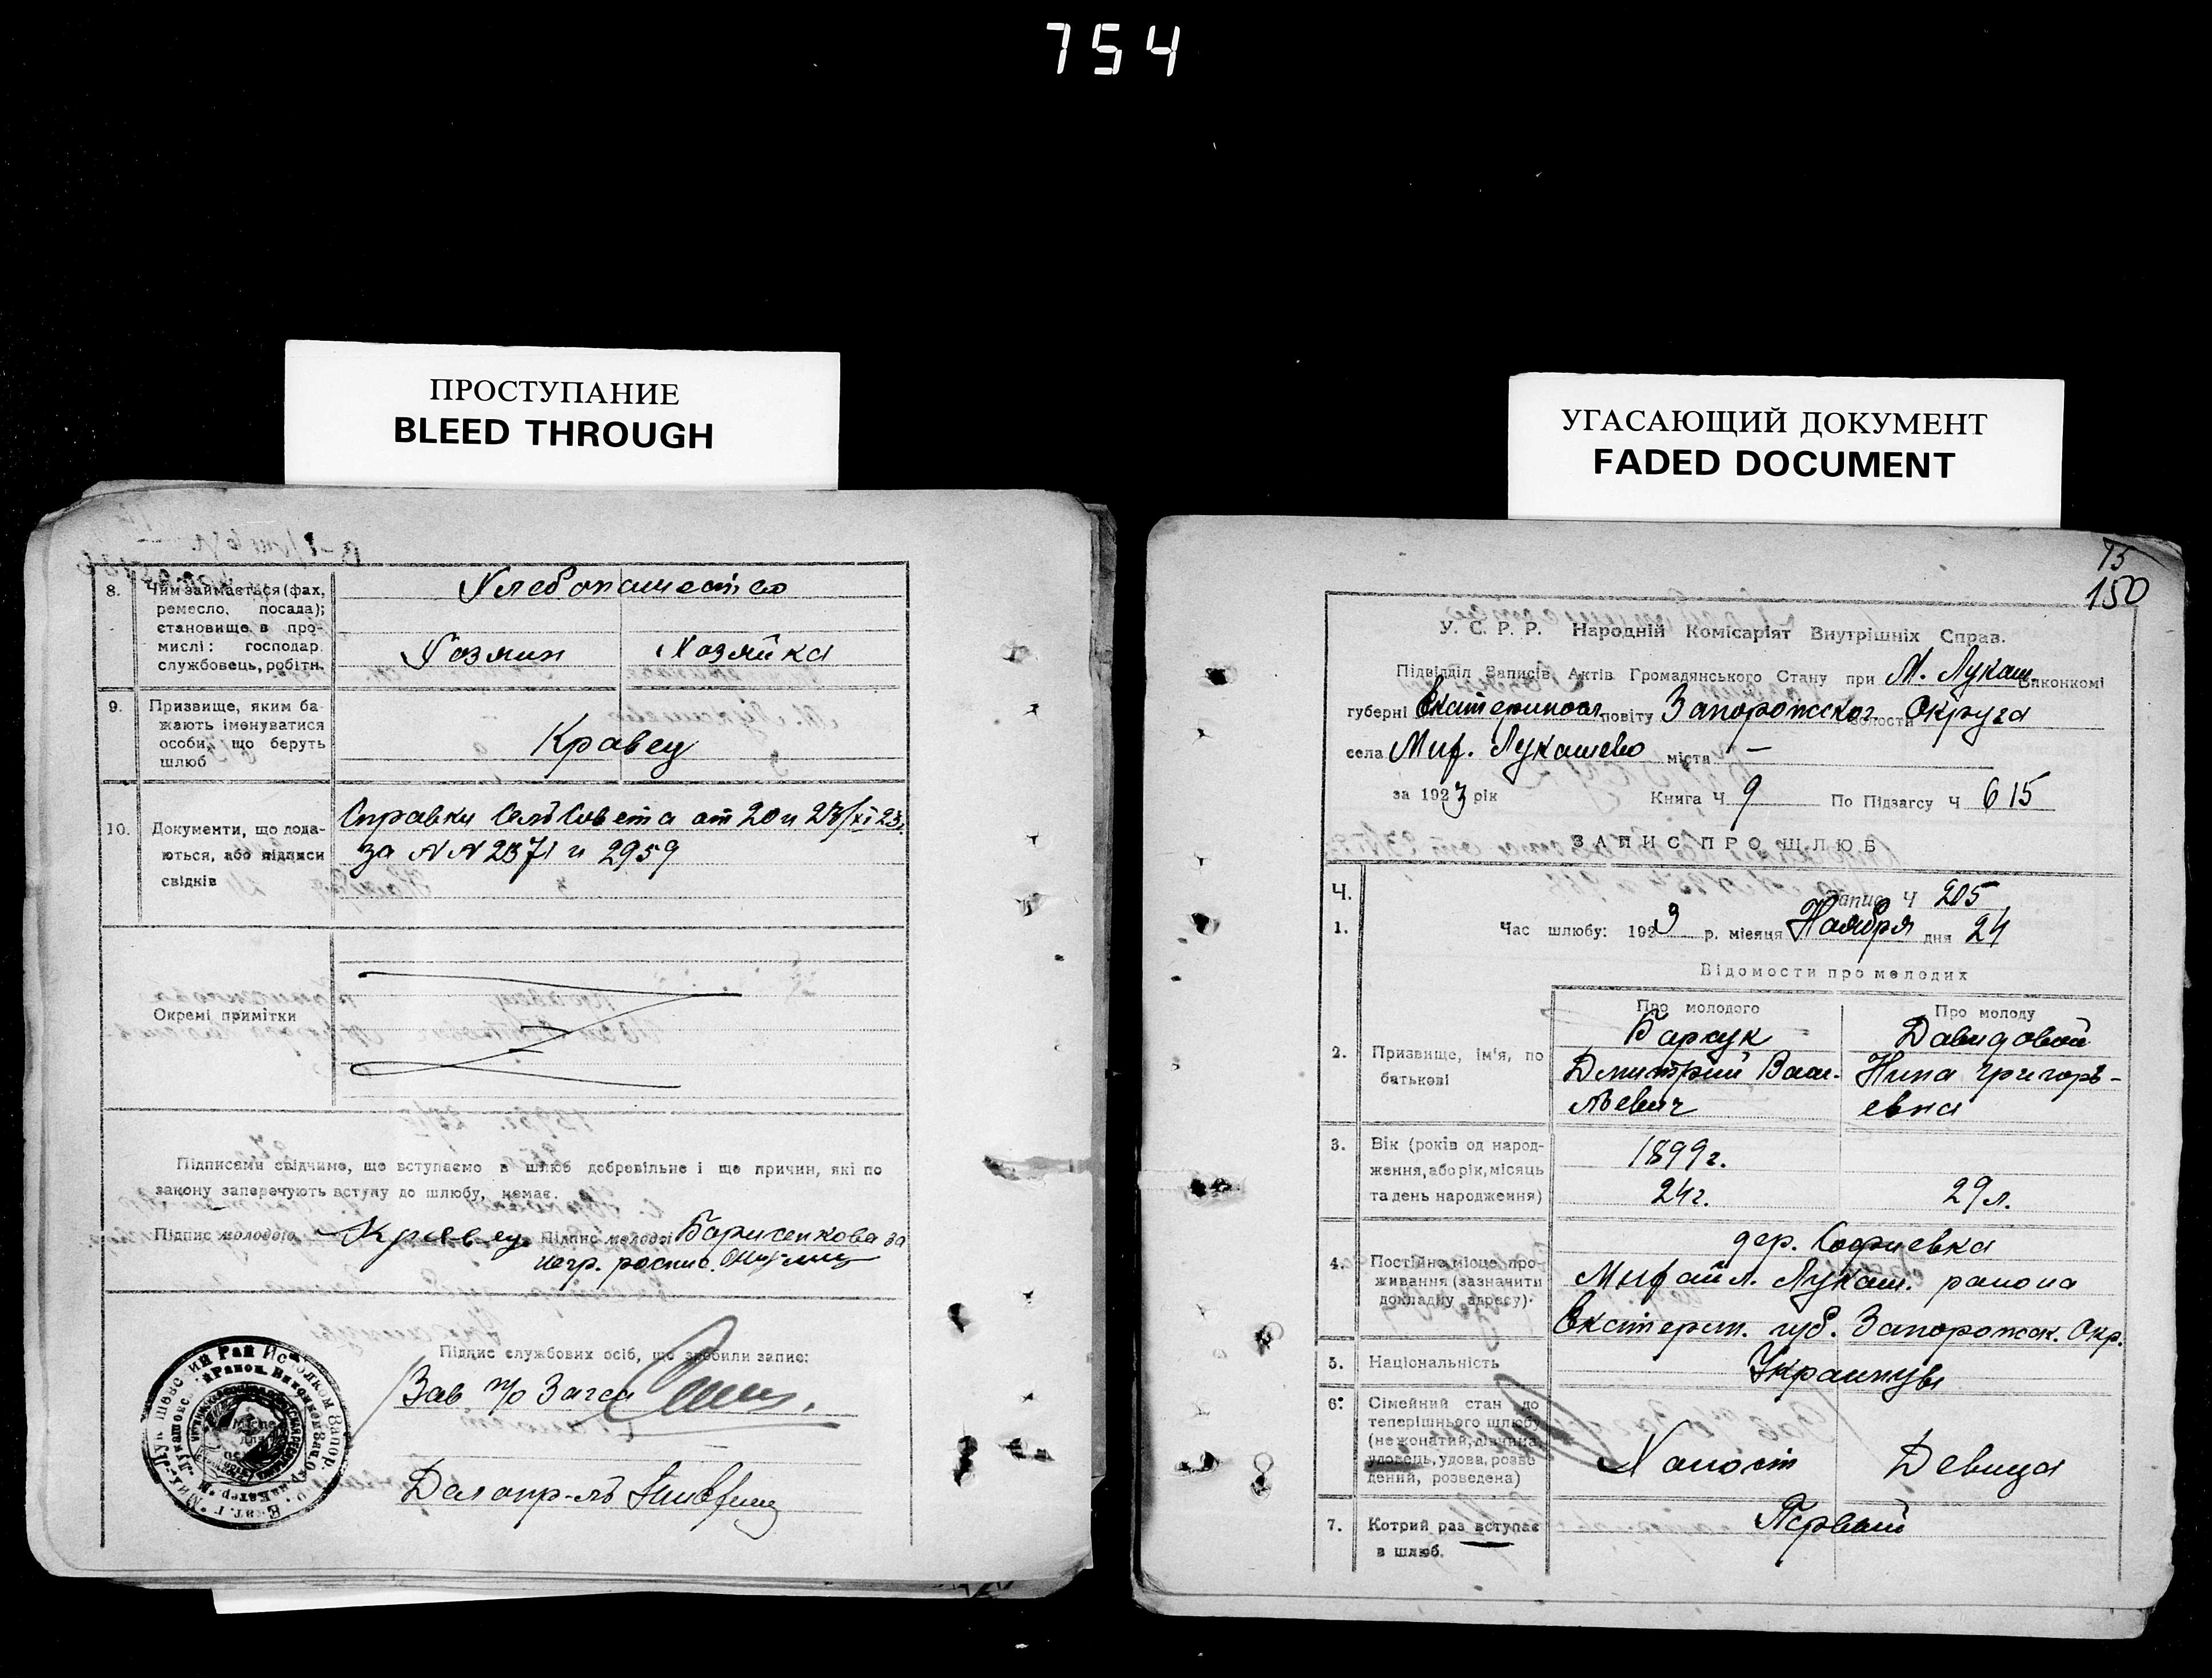 754
ПРОСТУПАНИЕ
BLEED THROUGH
8. Чим займається (фах,
ремесло, посада);
становище в про-
мислі: господар.
службовець, робітн.
Хлебопашество
Хозяин Хозяйка
9. Призвище, яким ба-
жають іменуватися
особи, що беруть
шлюб
Кравец
10. Документи, що пода-
ються, або підписи
свідків
Справки СельСовета от 20 и 23/XI 23.
за NN 2871 и 2959
Окремі примітки
Підписами свідчимо, що вступаємо в шлюб добровільно і що причин, які по
закону заперечують вступу до шлюбу, немає.
Підпис молодого Кравец Підпис молодої Борисенкова за
негр. роспис.
Підпис службових осіб, що зробили запис:
Зав п/о Загса
Делопр-ль
УГАСАЮЩИЙ ДОКУМЕНТ
FADED DOCUMENT
75
150
У. С. Р. Р. Народній Комісаріят Внутрішніх Справ.
Підвідділ Записів Актів Громадянського Стану при М. Лукаш. Виконкомі
губерні Екатериносл повіту Запорожског волости Округа
села Мих. Лукашево міста —
за 1923 рік Книга Ч 9 По Підзагсу Ч 615
ЗАПИС ПРО ШЛЮБ
Ч. Запис Ч 205
1. Час шлюбу: 1923 р. місяця Ноября дня 24
Відомости про молодих
Про молодого Про молоду
2. Призвище, ім'я, по
батькові
Барсук Давидовой
Дмитрий Васи- Нина Григорь-
льевич евна
3. Вік (років од народ-
ження, або рік, місяць
та день народження)
1899г.
24г. 29л.
4. Постійне місце про-
живання (зазначити
докладну адресу).
дер. Софиевка
Михайл. Лукаш. района
Екатерин. губ. Запорожск. Окр.
5. Національність Украинцы
6. Сімейний стан до
теперішнього шлюбу
(не жонатий, дівчина,
удовець, удова, розве
дений, розведена)
Холост Девица
7. Котрий раз вступає
в шлюб.
Первый